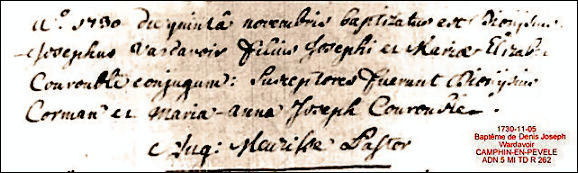 A.º 1730 die quinta novembris baptizatus est Dionysius
Josephus Vardavoir filius Josephi et Mariæ Elizab.
Couroublé conjugum: Susceptores fuerunt Dionysius
Corman et Maria-anna Joseph Couroublé.
Aug: Meurisse Pastor
1730-11-05
Baptême de Denis Joseph
Wardavoir
CAMPHIN-EN-PEVELE
ADN 5 MI TD R 262